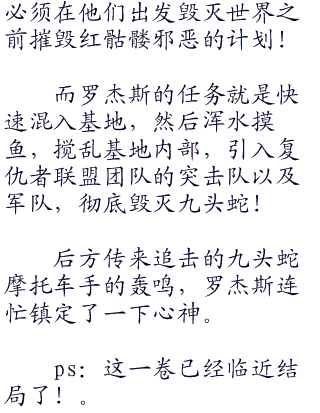 必须在他们出发毁灭世界之
前摧毁红骷髅邪恶的计划！
而罗杰斯的任务就是快
速混入基地，然后浑水摸
鱼，搅乱基地内部，引入复
仇者联盟团队的突击队以及
军队，彻底毁灭九头蛇！
后方传来追击的九头蛇
摩托车手的轰鸣，罗杰斯连
忙镇定了一下心神。
ps：这一卷已经临近结
局了！。